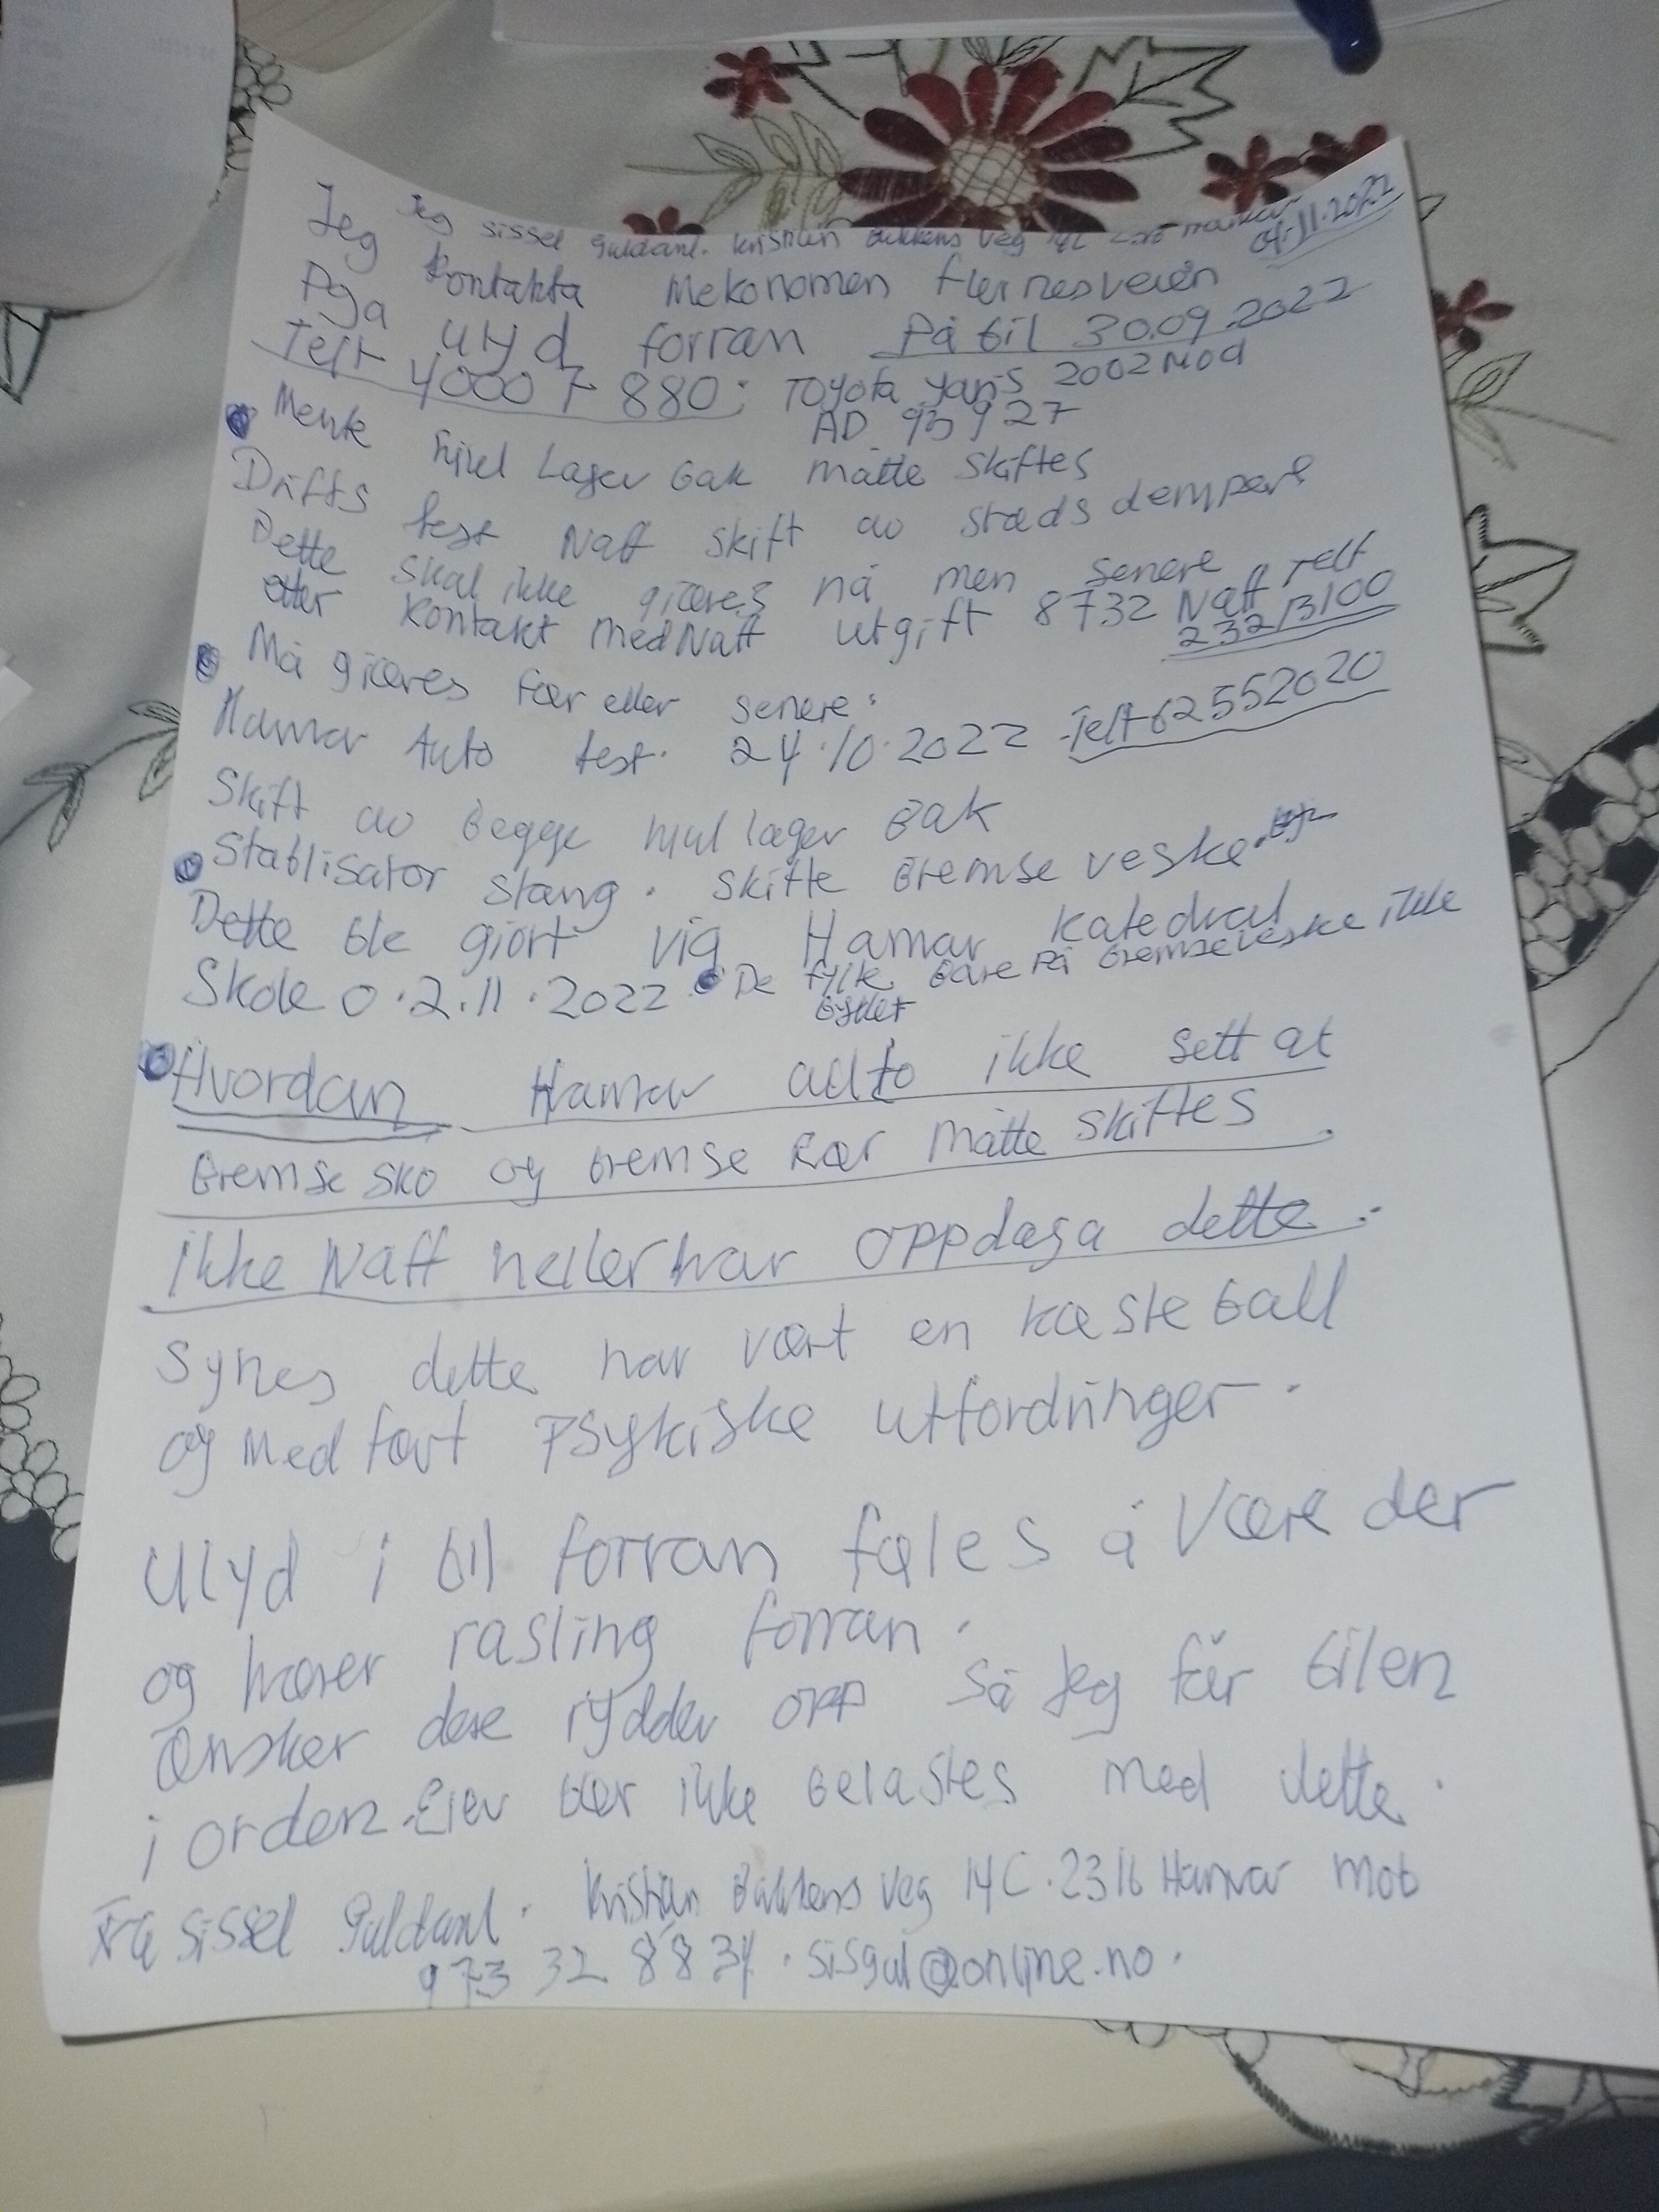 Jeg sissel Guldanl. Kristian Bakkens veg 14C 2316 Hamar
04.11.2022
Jeg kontakta Mekonomen flernesveien
Pga ulyd forran På bil 30.09.2022
Telf 4000 7 880: TOYOTA Yaris 2002 Mod
AD 93927
Mente hjul Lager bak måtte skiftes
Drifts test Naff skift av støds dempere
Dette skal ikke gjøres nå men senere
etter kontakt med Naff utgift 8732 Naff Telf
232/3100
Må gjøres før eller senere:
Hamar Auto test. 24.10.2022 Telf 62552020
Skift av begge hjul lager bak
Stablisator stang. skifte bremse veske.
Dette ble gjort vig Hamar katedral
Skole 0.2.11.2022 De fylte bare på bremseveske ikke
byttet
Hvordan Hamar auto ikke sett at
bremse sko og bremse Rør måtte skiftes.
ikke Naff heller har oppdaga dette.
Synes dette har vært en kasteball
og med ført Psykiske utfordringer.
Ulyd i bil forran føles å være der
og hører rasling forran.
Ønsker dere rydder opp så jeg får bilen
i orden. Eier bør ikke belastes med dette.
Fra sissel Guldanl. Kristian Bakkens veg 14C. 2316 Hamar Mob
973 32 8834. sisgul@online.no.